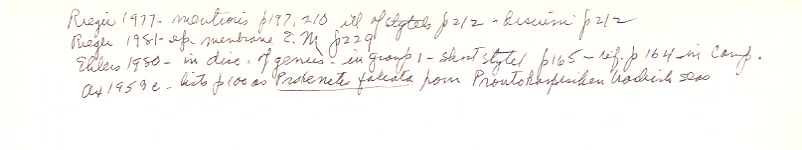 Rieger 1977 - mentions p197, 210 ill of stylets p212 - discussion p212
Rieger 1981 - ep. membrane E.M. p229
Ehlers 1980 - in disc. of genus - in group 1 - short stylet p165 - ref. p164 - in comp.
Ax 1959c - lists p100 as Proxenetes from Prontokaspisiken brackish seas